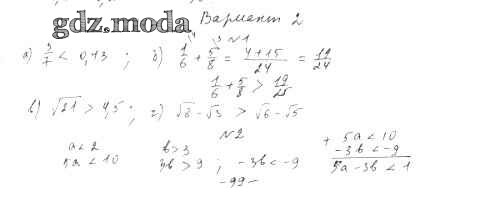 gdz.moda Вариант 2
№1
а) 3/7 < 0,43 ; б) 1/6 + 5/8 = 4+15/24 = 19/24
1/6 + 5/8 > 19/25
в) √21 > 4,5 ; г) √6 - √3 > √6 - √5
№2
a < 2 b > 3 + 5a < 10
5a < 10 3b > 9 ; -3b < -9 -3b < -9
5a - 3b < 1
-99-